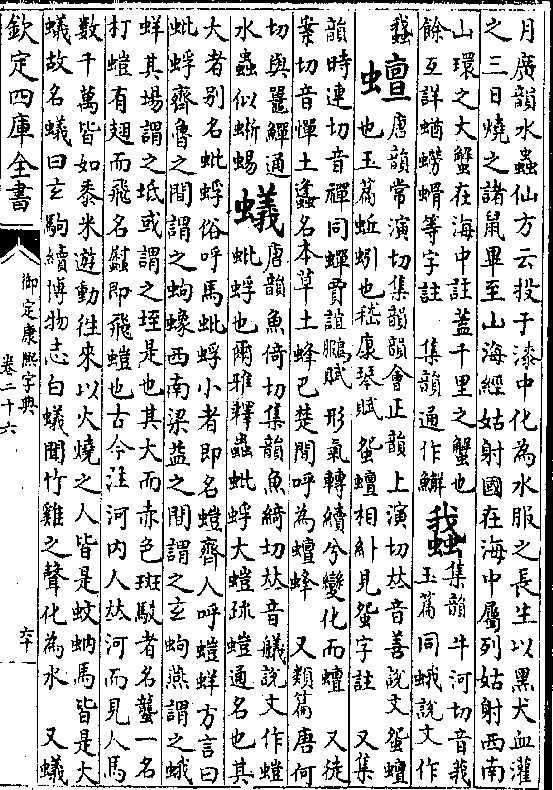 月廣韻水蟲仙方云投于漆中化為水服之長生以黑犬血灌
之三日燒之諸鼠畢至山海經姑射國在海中屬列姑射西南
山環之大蟹在海中註葢千里之蟹也 集韻牛河切音莪
餘互詳蝤蟧蝟等字註 集韻通作蠏 䖸 玉篇同蛾說文作
蟁
蟺 唐韻常演切集韻韻會正韻上演切𠀤音善說文夗蟺
也玉篇蚯蚓也嵆康琴賦蜿蟺相糾見蜿字註 又集
韻時連切音禪同蟬賈誼鵩賦形氣轉續兮變化而蟺 又徒
案切音憚土螽名本草土蜂巴楚閒呼為蟺蜂 又類篇唐何
切與鼉鱓通
水蟲似蜥蜴 蟻 唐韻魚倚切集韻魚綺切𠀤音艤說文作螘
蚍蜉也爾雅釋蟲蚍蜉大螘疏螘通名也其
大者别名蚍蜉俗呼馬蚍蜉小者即名螘齊人呼螘蛘方言曰
蚍蜉齊魯之間謂之蚼蟓西南梁益之間謂之玄蚼燕謂之蛾
蛘其場謂之坻或謂之垤是也其大而赤色斑駁者名蠪一名
打螘有翅而飛名螱即飛螘也古今注河内人𠀤河而見人馬
數千萬皆如黍米遊動往來以火燒之人皆是蚊蚋馬皆是大
蟻故名蟻曰玄駒續博物志白蟻聞竹雞之聲化為水 又蟻
欽定四庫全書
御定康熙字典
卷二十六
六十